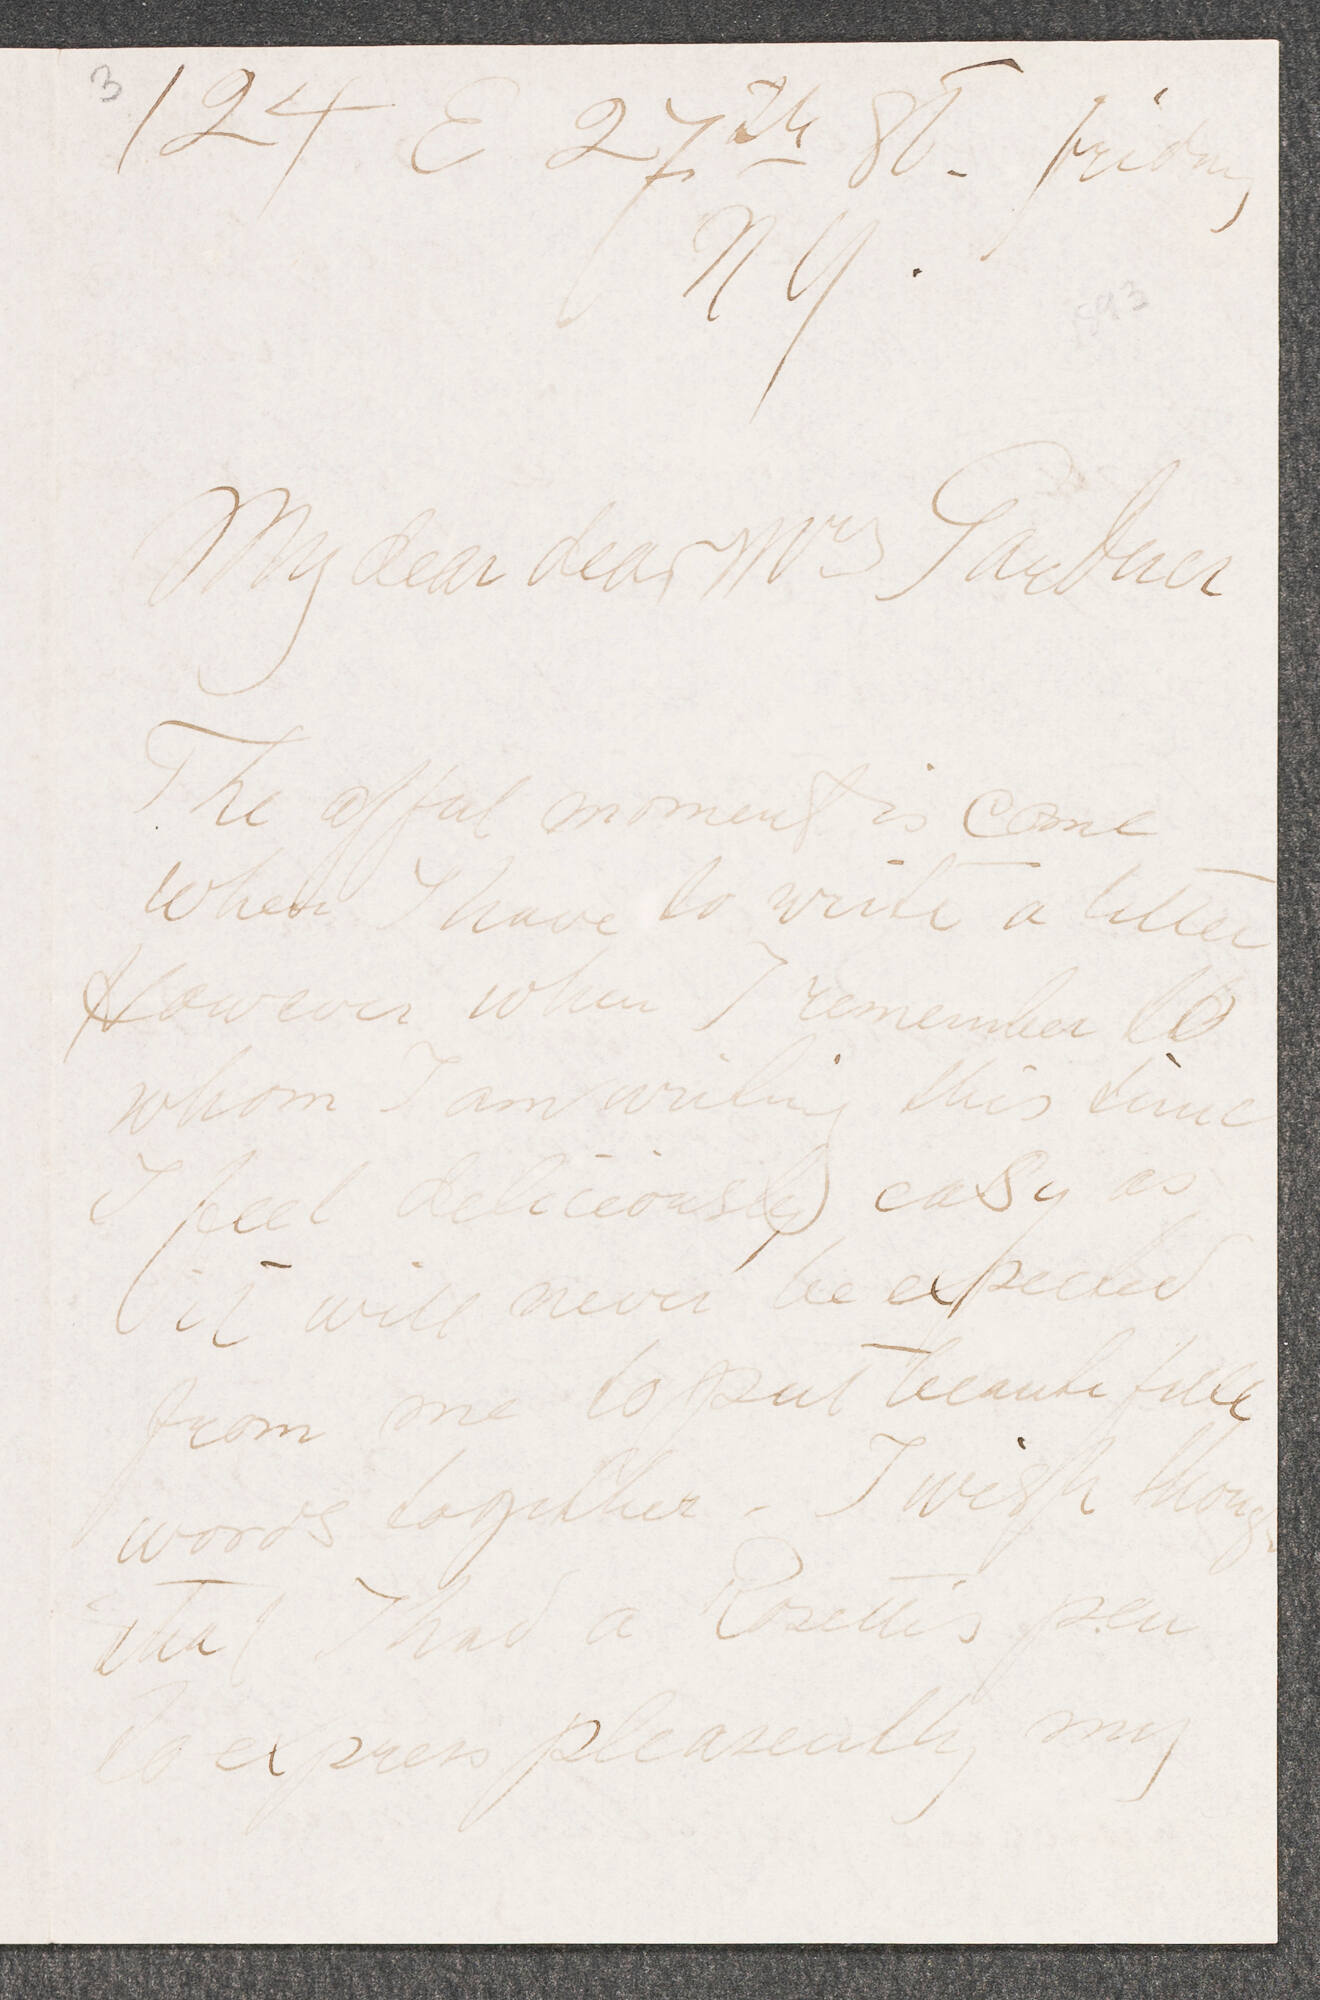 3
124 E 27th St. friday
N Y.
1893
My dear dear Mrs Gardner
The offul moment is come
when I have to write a letter
However when I remember to
whom I am writing this time
I feel deliciously easy as
it will never be expected
from me to put beautifull
words together. I wish though
that I had a Rosettis pen
to express pleasently my